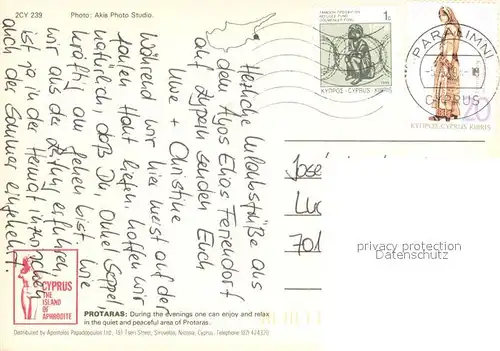 2CY 239
Photo: Akis Photo Studio.
Herzliche Urlaubsgrüße aus
dem Ayos Elias Feriendorf
auf Zypern senden Euch
Uwe + Christine
Während wir hier meist auf der
Haut liegen, hoffen wir
natürlich, daß Du, Onkel
kräftig am gehen bist. Wie
wir aus der Zeitung erfuhren,
ist ja in der Heimat inzwischen
auch der Sommer eingekehrt.
1c
REFUGEE FUND
ΚΥΠΡΟΣ-CYPRUS-KIBRIS
PARALIMNI
CYPRUS
20
ΚΥΠΡΟΣ-CYPRUS KIBRIS
José
Luc
701
privacy protection
Datenschutz
CYPRUS
THE
ISLAND
OF
APHRODITE
PROTARAS: During the evenings one can enjoy and relax
in the quiet and peaceful area of Protaras.
Distributed by Apostolos Papadopoulos Ltd, Street, Strovolos, Nicosia, Cyprus. Telephone